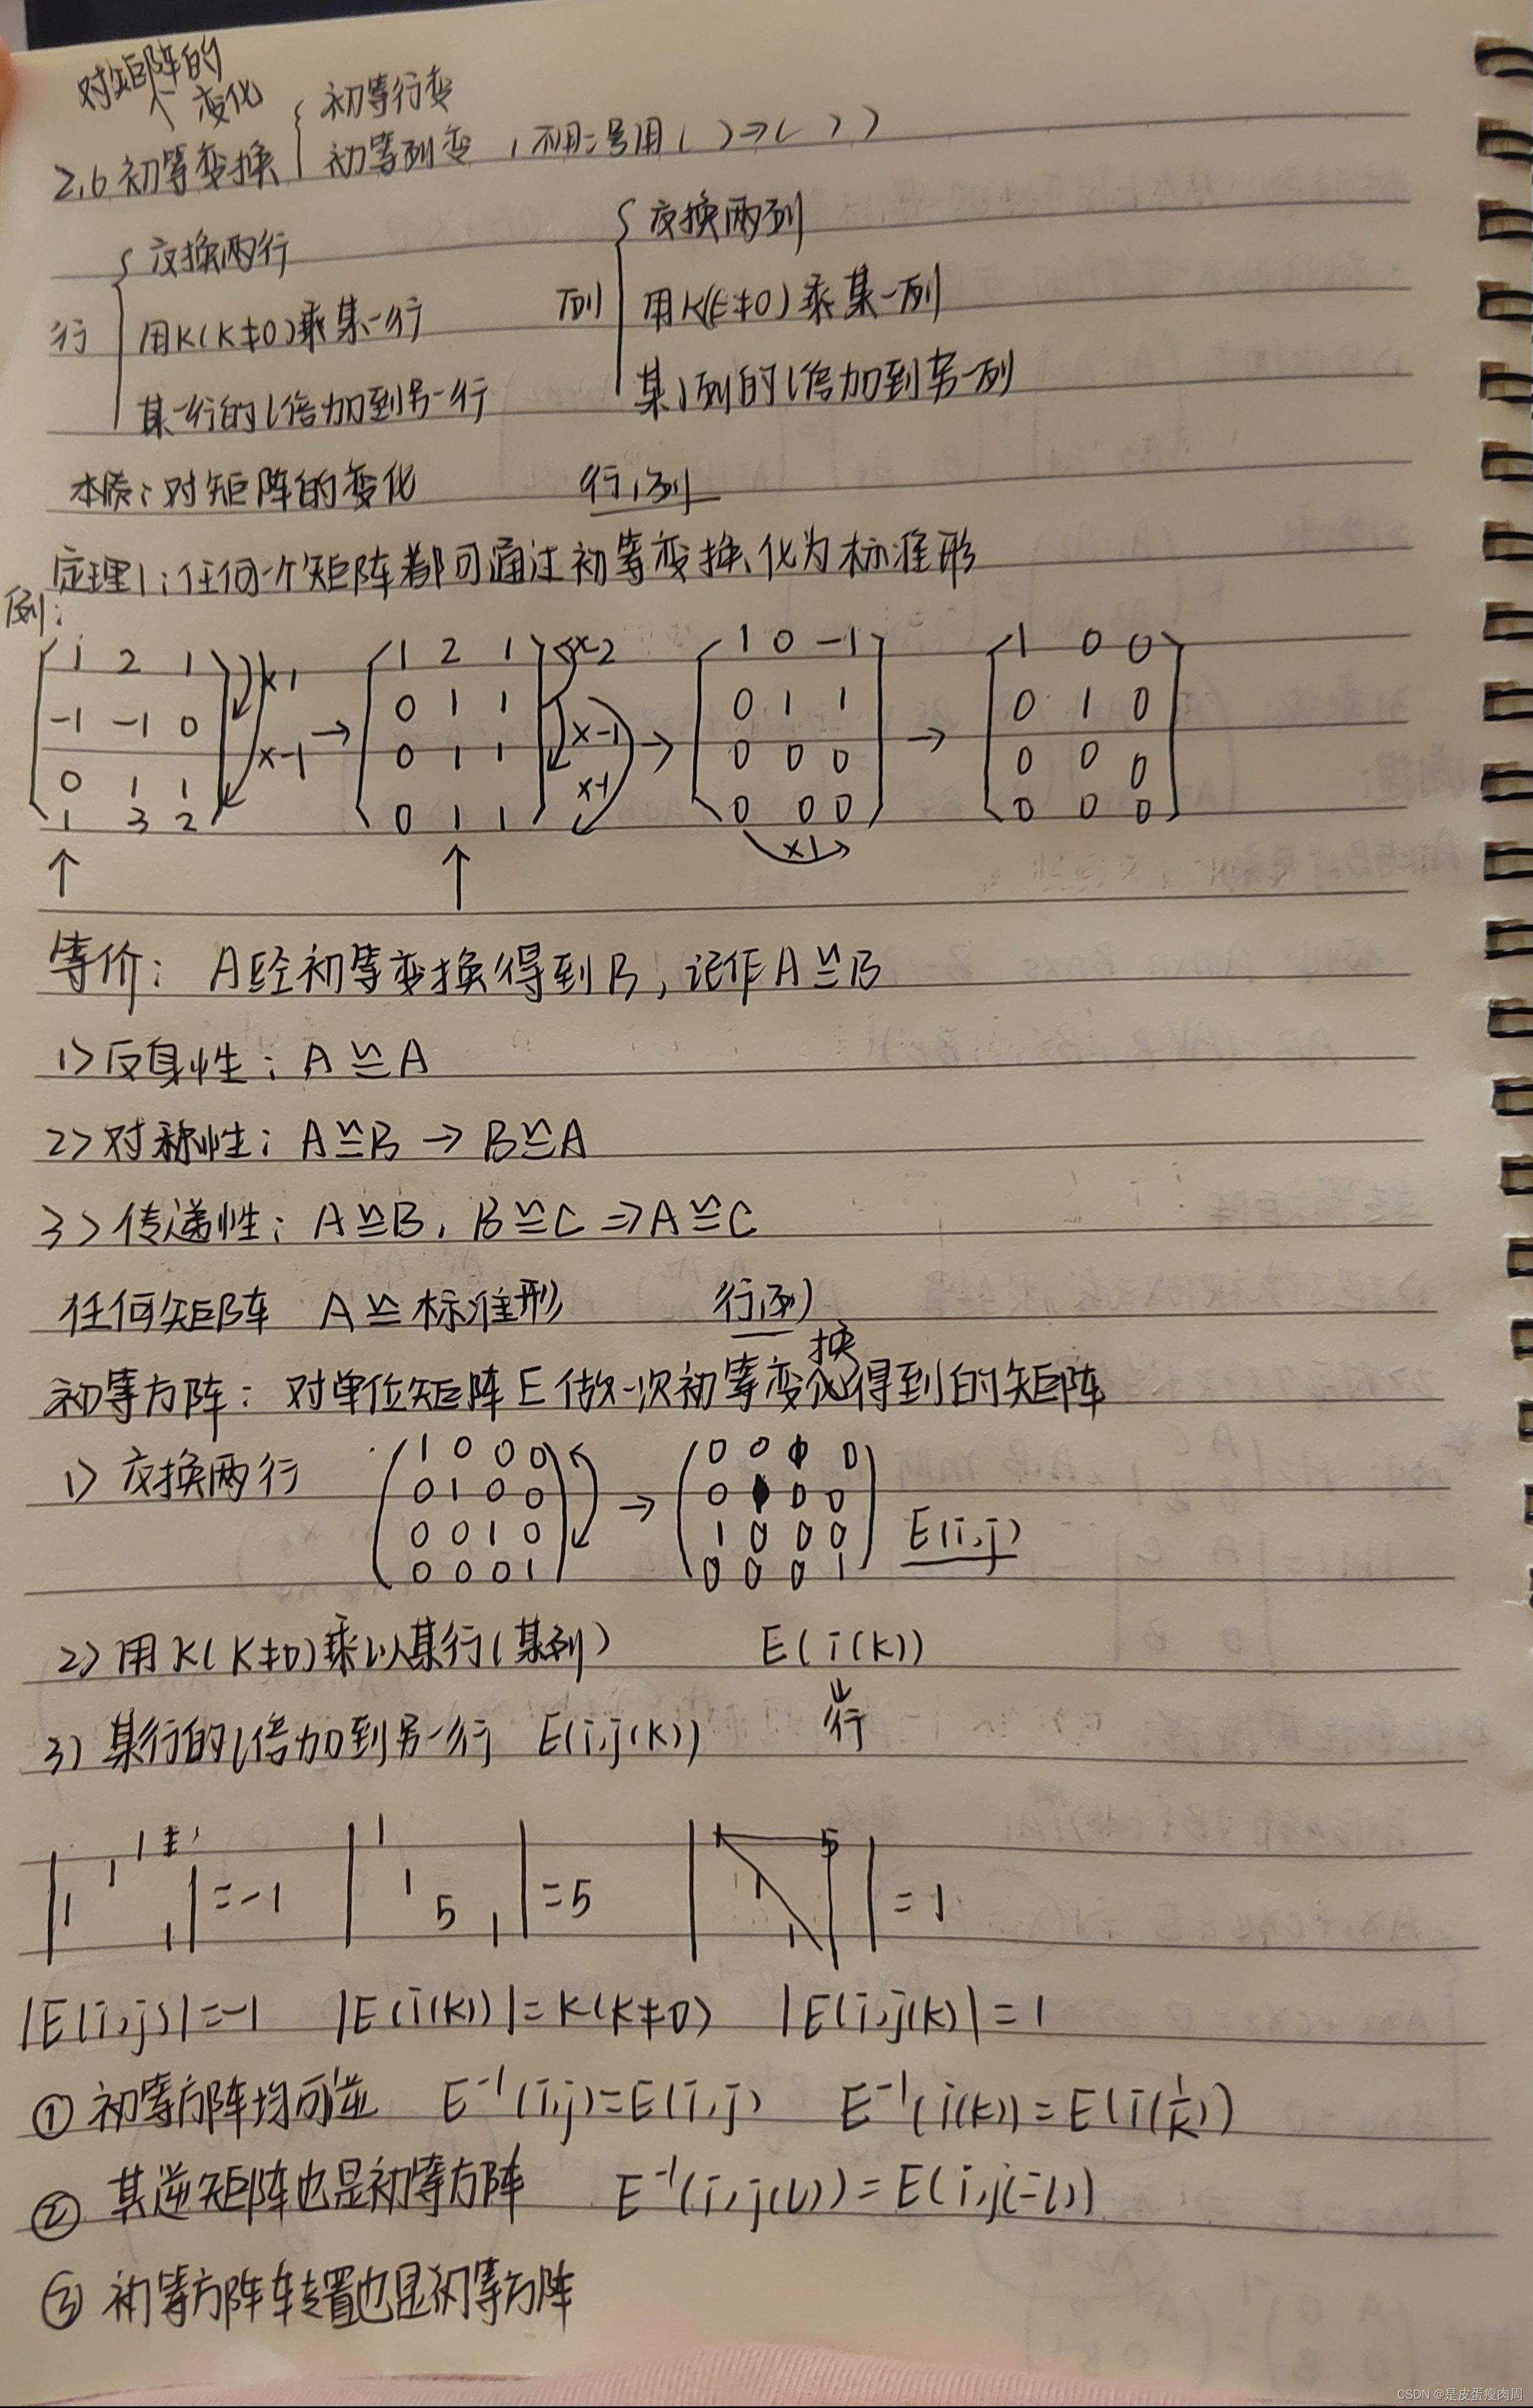 对矩阵的
变化
2.6 初等变换 { 初等行变
初等列变 (不用=号用( )→( ))
行 { 交换两行
用K(K≠0)乘某一行
某一行的l倍加到另一行
列 { 交换两列
用K(K≠0)乘某一列
某1列的l倍加到另一列
本质:对矩阵的变化 行,列
定理1:任何一个矩阵都可通过初等变换化为标准形
例:
(1 2 1 ×1 → (1 2 1 ×2 → (1 0 -1) → (1 0 0)
-1 -1 0 0 1 1 ×-1 0 1 1 0 1 0
0 1 1 ×-1 0 1 1 ×-1 0 0 0 0 0 0
1 3 2) 0 1 1) 0 0 0 0 0 0
↑ ↑ ×1
等价: A经初等变换得到B,记作A≌B
1>反身性: A≌A
2>对称性: A≌B → B≌A
3>传递性: A≌B, B≌C ⇒ A≌C
任何矩阵 A≌标准形 行,列
初等方阵: 对单位矩阵E做一次初等变换得到的矩阵
1> 交换两行 (1 0 0 0 → (0 0 1 0
0 1 0 0 0 1 0 0
0 0 1 0 1 0 0 0 E(i,j)
0 0 0 1) 0 0 0 1)
2> 用K(K≠0)乘以某行(某列) E(i(K))
↓
行
3) 某行的l倍加到另一行 E(i,j(K))
| 1 | = -1 | 1 | = 5 | 1 5 | = 1
1 1 1
1 5 1
1 1
|E(i,j)|=-1 |E(i(K))|=K(K≠0) |E(i,j(K)|=1
① 初等方阵均可逆 E⁻¹(i,j)=E(i,j) E⁻¹(i(K))=E(i(1/K))
② 其逆矩阵也是初等方阵 E⁻¹(i,j(l))=E(i,j(-l))
③ 初等方阵转置也是初等方阵
CSDN @是皮蛋瘦肉周